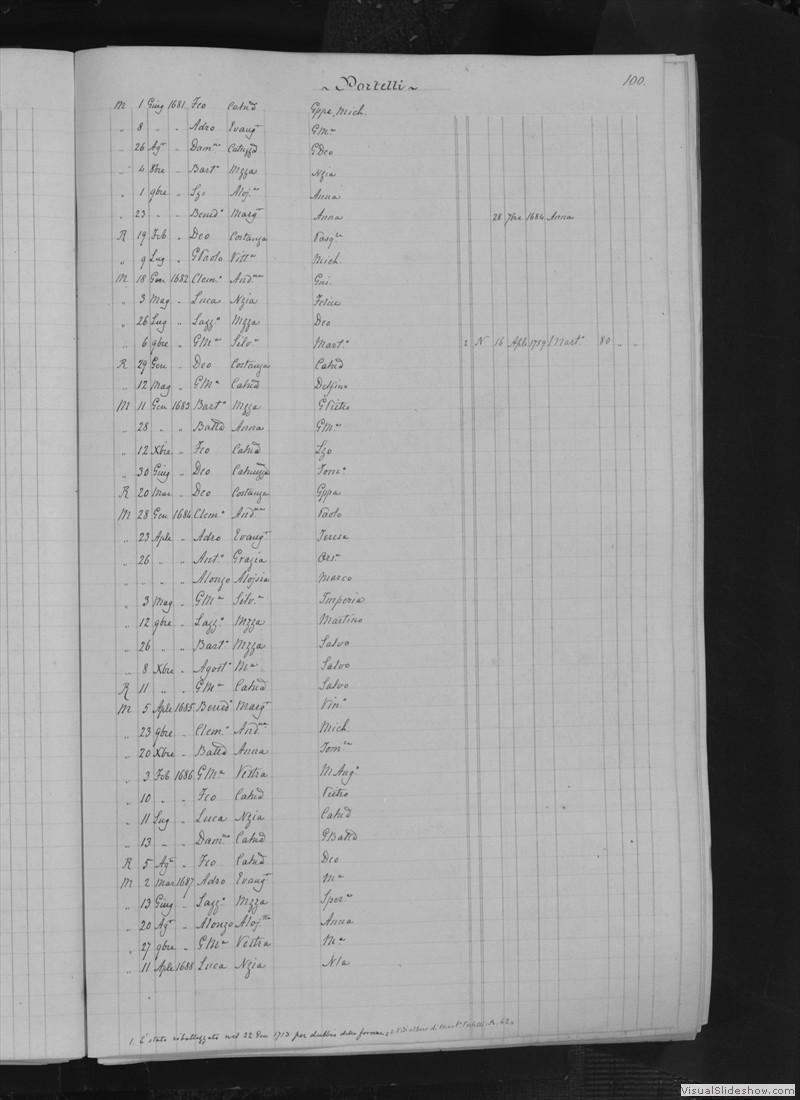 ~ Portelli ~ 100.
M 1 Giug 1681 Fco Catnd Gppe, Mich.
„ 8 „ „ Adro Evangta GMa
„ 26 Agt „ Damno GDeo
„ 4 8bre „ Barto Mzza Nzia
„ 1 9bre „ Lzo Alojna Anna
„ 23 „ „ Benedo Margta Anna 28 7bre 1684 Anna
R 19 Feb „ Deo Costanza Pasqle
„ 9 Lug „ GPaolo Vittna Mich.
M 18 Gen 1682 Clemo Andna Gni.
„ 3 Mag „ Luca Nzia Felice
„ 26 Lug „ Lazzo Mzza Deo
„ 6 9bre „ GMa Silva Marto 2 N 16 Aple 1759 Marto 80 „ „
R 29 Gen „ Deo Costanza Catnd
„ 12 Mag „ GMa Catnd Delfina
M 11 Gen 1683 Barto Mzza GPietro
„ 28 „ „ Battd Anna GMa
„ 12 Xbre „ Fco Catnd Lzo
„ 30 Giug „ Deo Tomo
R 20 Mar „ Deo Costanza Gppa
M 28 Gen 1684 Clemo Andna Paolo
„ 23 Aple „ Adro Evangta Teresa
„ 26 „ „ Anto Grazia Orsa
„ „ „ „ Alonzo Alojsia Marco
„ 3 Mag „ GMa Silva Imperia
„ 12 9bre „ Lazzo Mzza Martino
„ 26 „ „ Barto Mzza Salvo
„ 8 Xbre „ Agosto Ma Salvo
R 11 „ „ GMa Catnd Salvo
M 5 Aple 1685 Benedo Margta Vino
„ 23 9bre „ Clemo Andna Mich.
„ 20 Xbre „ Battd Anna Tomna
„ 3 Feb 1686 GMa Vestra MAngo
„ 10 „ „ Fco Catnd Pietro
„ 11 Lug „ Luca Nzia Catnd
„ 13 „ „ Damno Catnd GBattd
R 5 Agt „ Fco Catnd Deo
M 2 Mar 1687 Adro Evangta Ma
„ 13 Giug „ Lazzo Mzza Spera
„ 20 Agt „ Alonzo Alojna Anna
„ 27 9bre „ GMa Vestra Ma
„ 11 Aple 1688 Luca Nzia Nla
1. E' stato ribattezzato nel 22 Gen 1713 per dubbio della forma;
VisualSlideshow.com